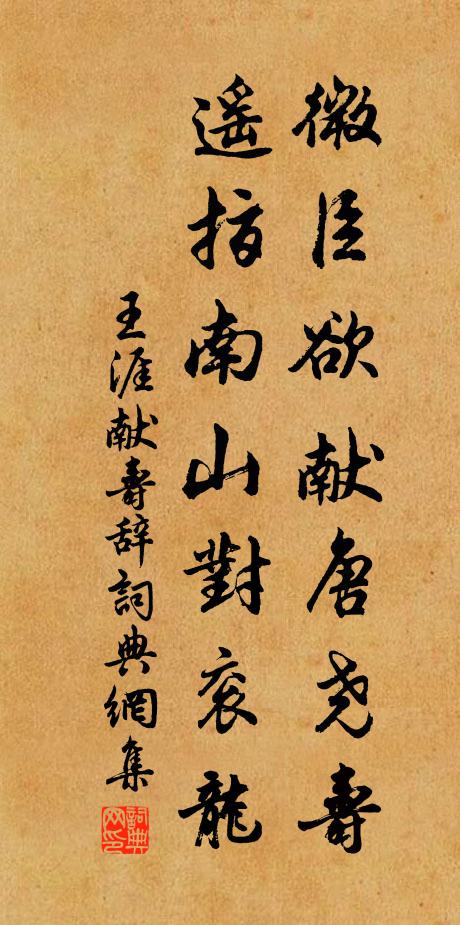 微臣欲献唐尧壽
遥指南山對衮龍
王涯献壽辞詞典網集
詞典网印